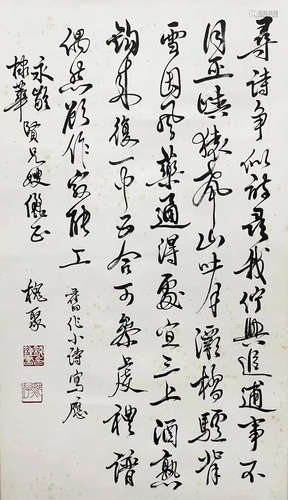 尋詩爭似詩尋我佇興追逋事不
同巫峽猿聲山吐月灞橋驢背
雪因風藥通得處宜三上酒熟
鉤來復一中五合可參虔禮譜
偶然欲作最能工 舊作小詩寫應
永
棣華 賢兄嫂儷正 槐聚